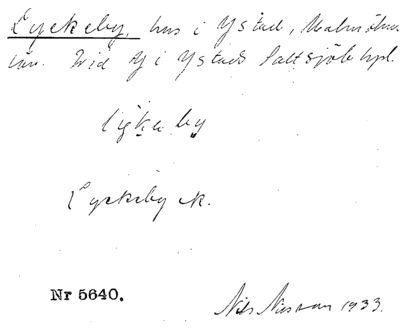 Lyckeby, hus i Ystad, Malmöhus
län. Vid Ry i Ystads Saltsjöb hpl.
lyckeby
Lyckeby K.
Nr 5640.
Nils Nilsson 1933.